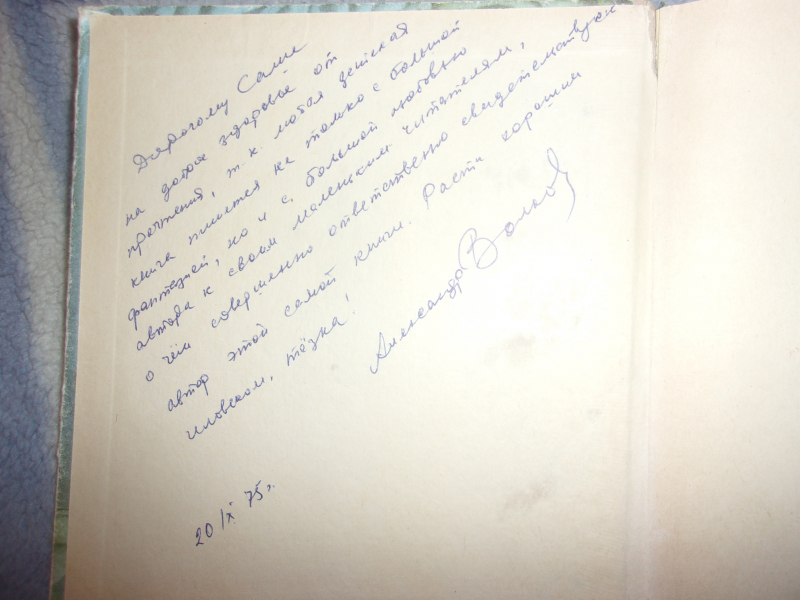 Дорогому Саше
на долгое здоровье от
прочтения, т.к. любая детская
книга пишется не только с большой
фантазией, но и с большой любовью
автора к своим маленьким читателям,
о чём совершенно ответственно свидетельствует
автор этой самой книги. Расти хорошим
человеком, тёзка!
Александр Волков
20/IX 75г.